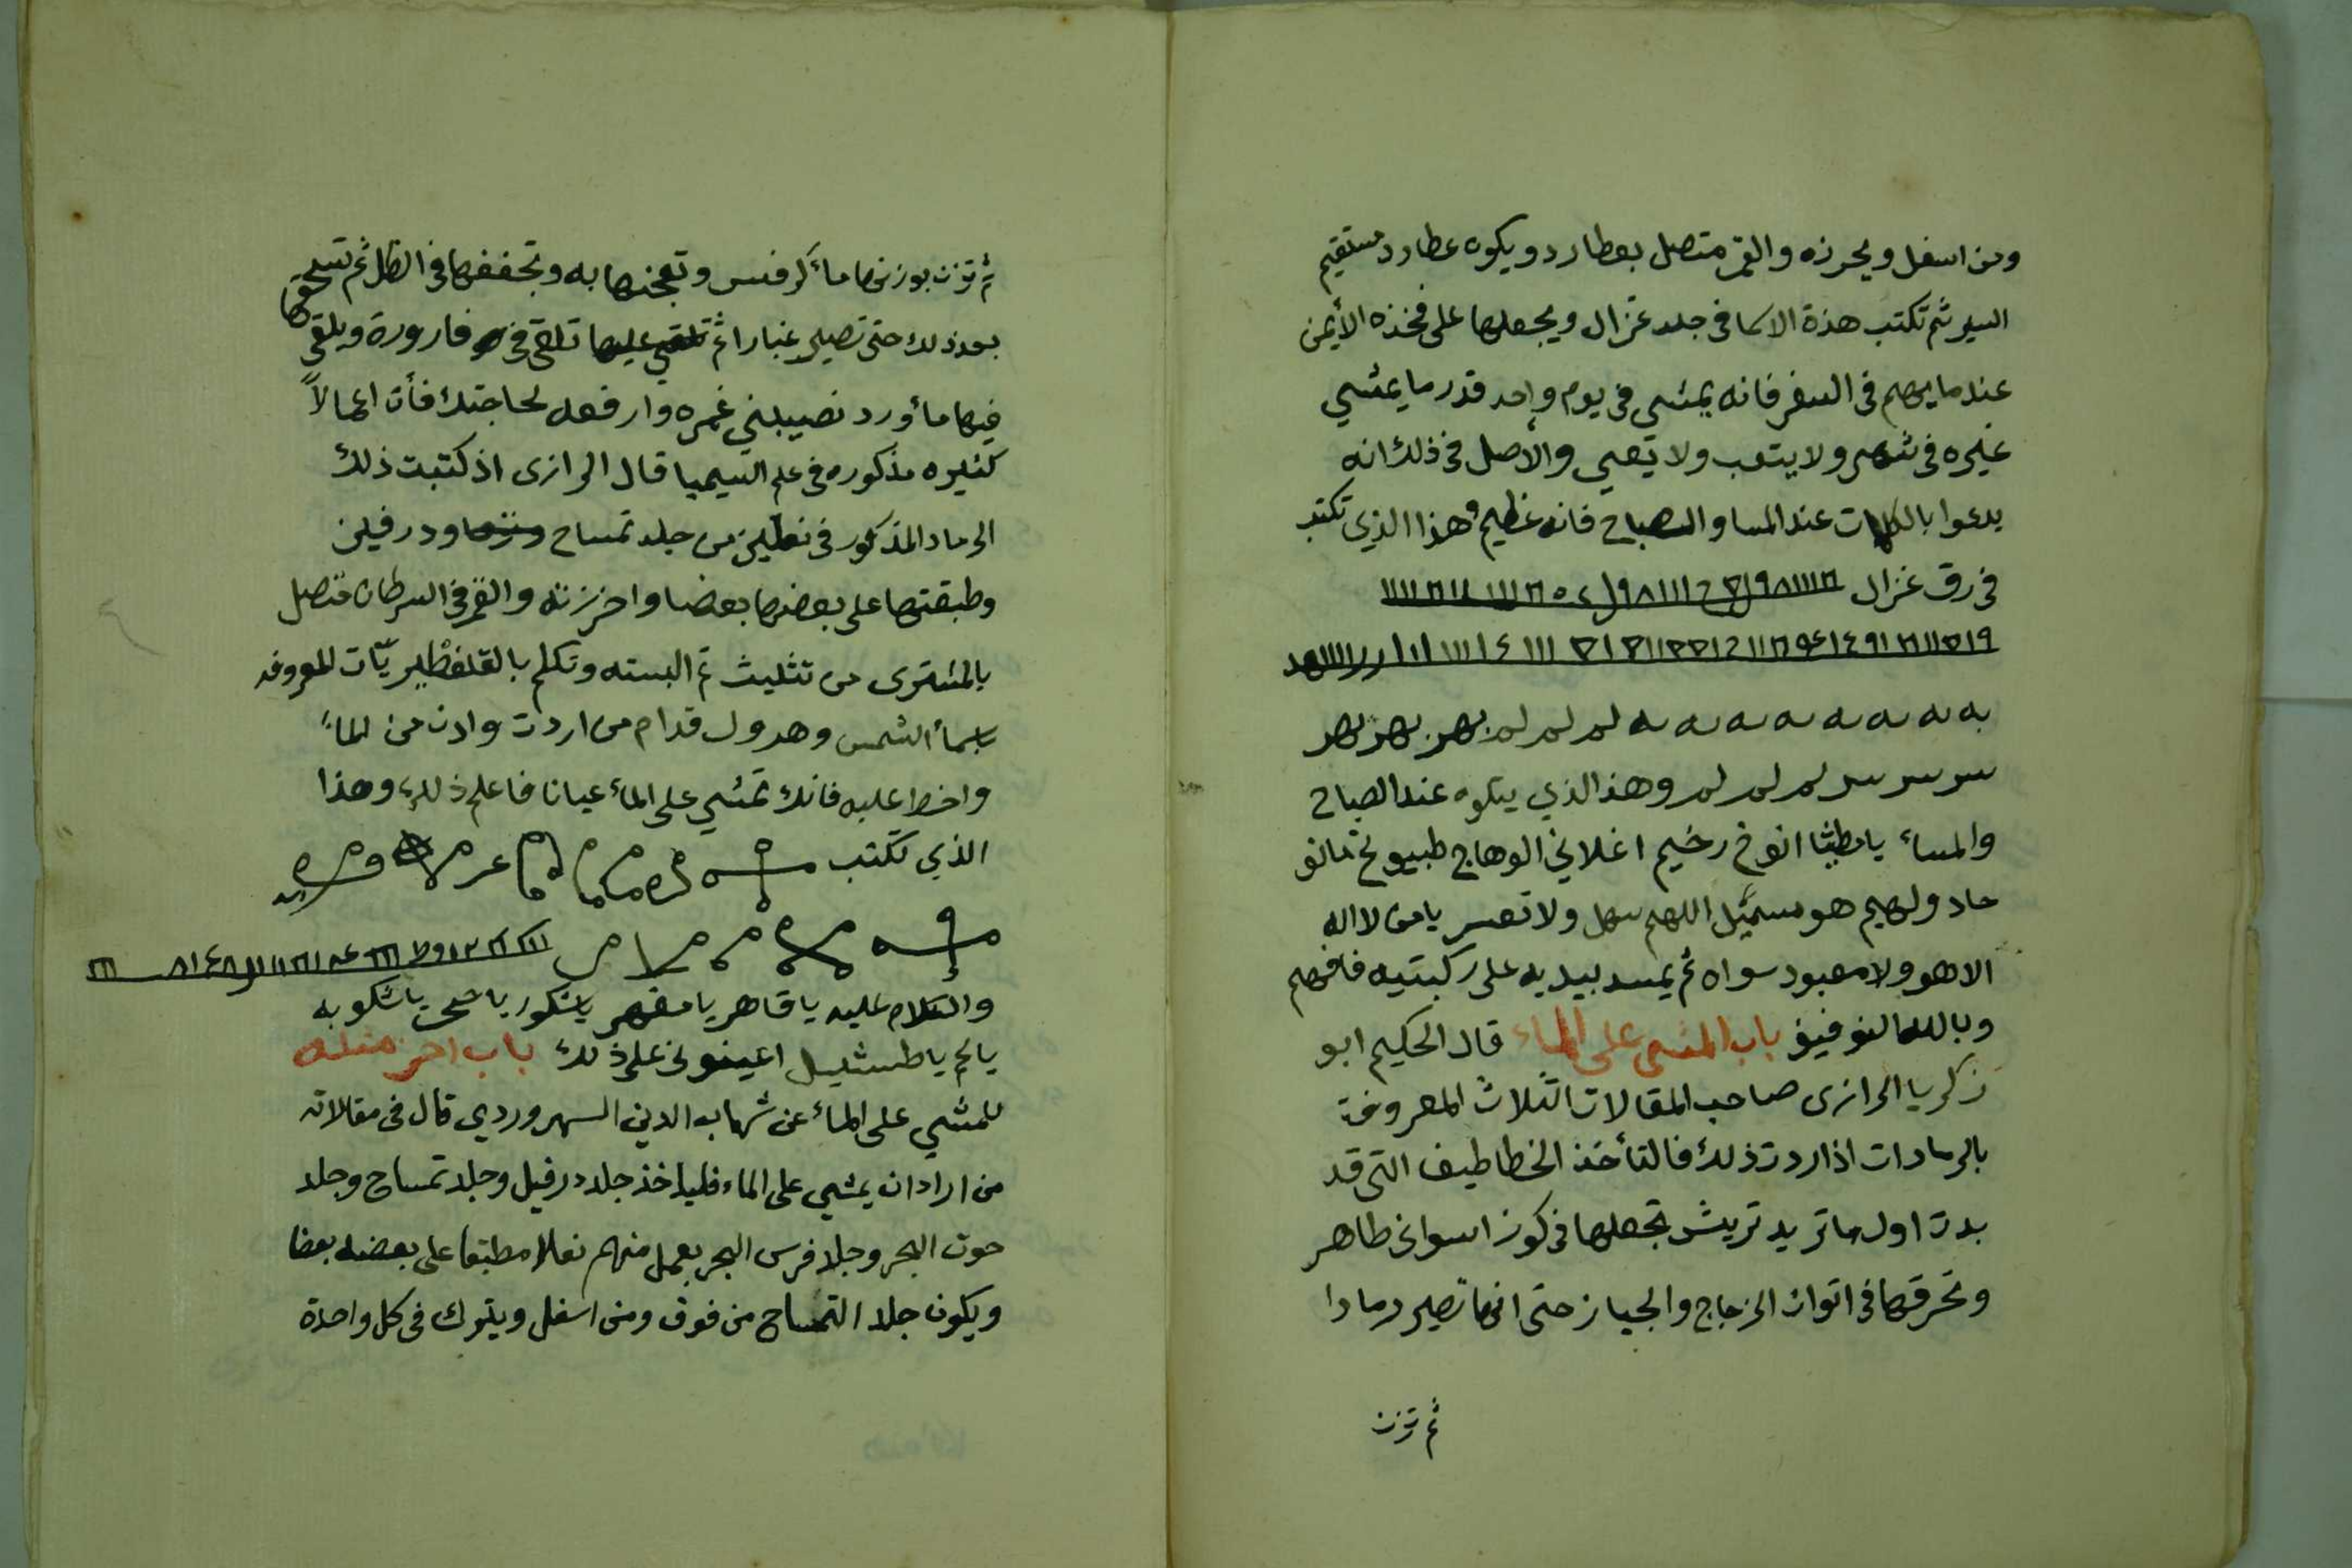 ومن اسفل ويحرزه والقمر متصل بعطارد ويكون عطارد مستقيم
السير ثم تكتب هذة الاسما فى جلد غزال ويجعلها على فخذه الأيمن
عندما يهم فى السفر فانه يمشى فى يوم واحد قدر ما يمشي
غيره فى شهر ولا يتعب ولا يعيى والأصل فى ذلك انه
يدعوا بالكلمات عند المسا والصباح فانه عظيم وهذا الذي تكتب
فى رق غزال
به به به به به به به به لم لم لم
سر سر سر لم لم لم وهذ الذي يتلوه عند الصباح
والمساء يا انوخ رخيم اغلاني الوهاج
هو اللهم سهل ولا تعسر يا من لا اله
الا هو ولا معبود سواه ثم يمسد بيديه على ركبتيه فافهم
وبالله التوفيق باب المشى على الماء قال الحكيم ابو
زكريا الرازى صاحب المقالات الثلاث المعروفة
بالرمادات اذا اردت ذلك فالتأخذ الخطاطيف التى قد
بدت اول ما تريد تريش تجعلها فى كوز اسوانى طاهر
وتحرقها فى اتوان الزجاج والجياز حتى انها تصير رمادا
ثم تزن
ثم تزن بوزنها ماء كرفس وتعجنها به وتجففها فى الظل ثم تسحقها
بعد ذلك حتى تصير غبارا ثم تلقى فى قارورة ويلقى
فيها مأ ورد نصيبني غمره وارفعه لحاجتك فأن اعمالاً
كثيره مذكوره فى علم السيميا قال الرازى اذ كتبت ذلك
الرماد المذكور فى نعلين من جلد تمساح ودرفيلن
وطبقتها على بعضها بعضا واخرزته والقمر فى السرطان متصل
بالمشترى من تثليث ثم البسته وتكلم بالقلفطيريّات المعروفه
باسمأ الشمس وهرول قدام من اردت وادن من الماء
واخط عليه فانك تمشي على المأ عيانا فاعلم ذلك وهذا
الذي تكتب
والكلام عليه يا قاهر يا مقهر يا شكور يا ضحى يا شكو به
يالخ يا طسشليل اعينونى على ذلك باب اخر مثله
للمشي على المأ عن شهاب الدين السهروردي قال فى مقالاته
من اراد ان يمشي على الماء فلياخذ جلد درفيل وجلد تمساح وجلد
حوت البحر وجلد فرس البحر يعمل منهم نعلا مطبقا على بعضه بعضا
ويكون جلد التمساح من فوق ومن اسفل ويترك فى كل واحدة